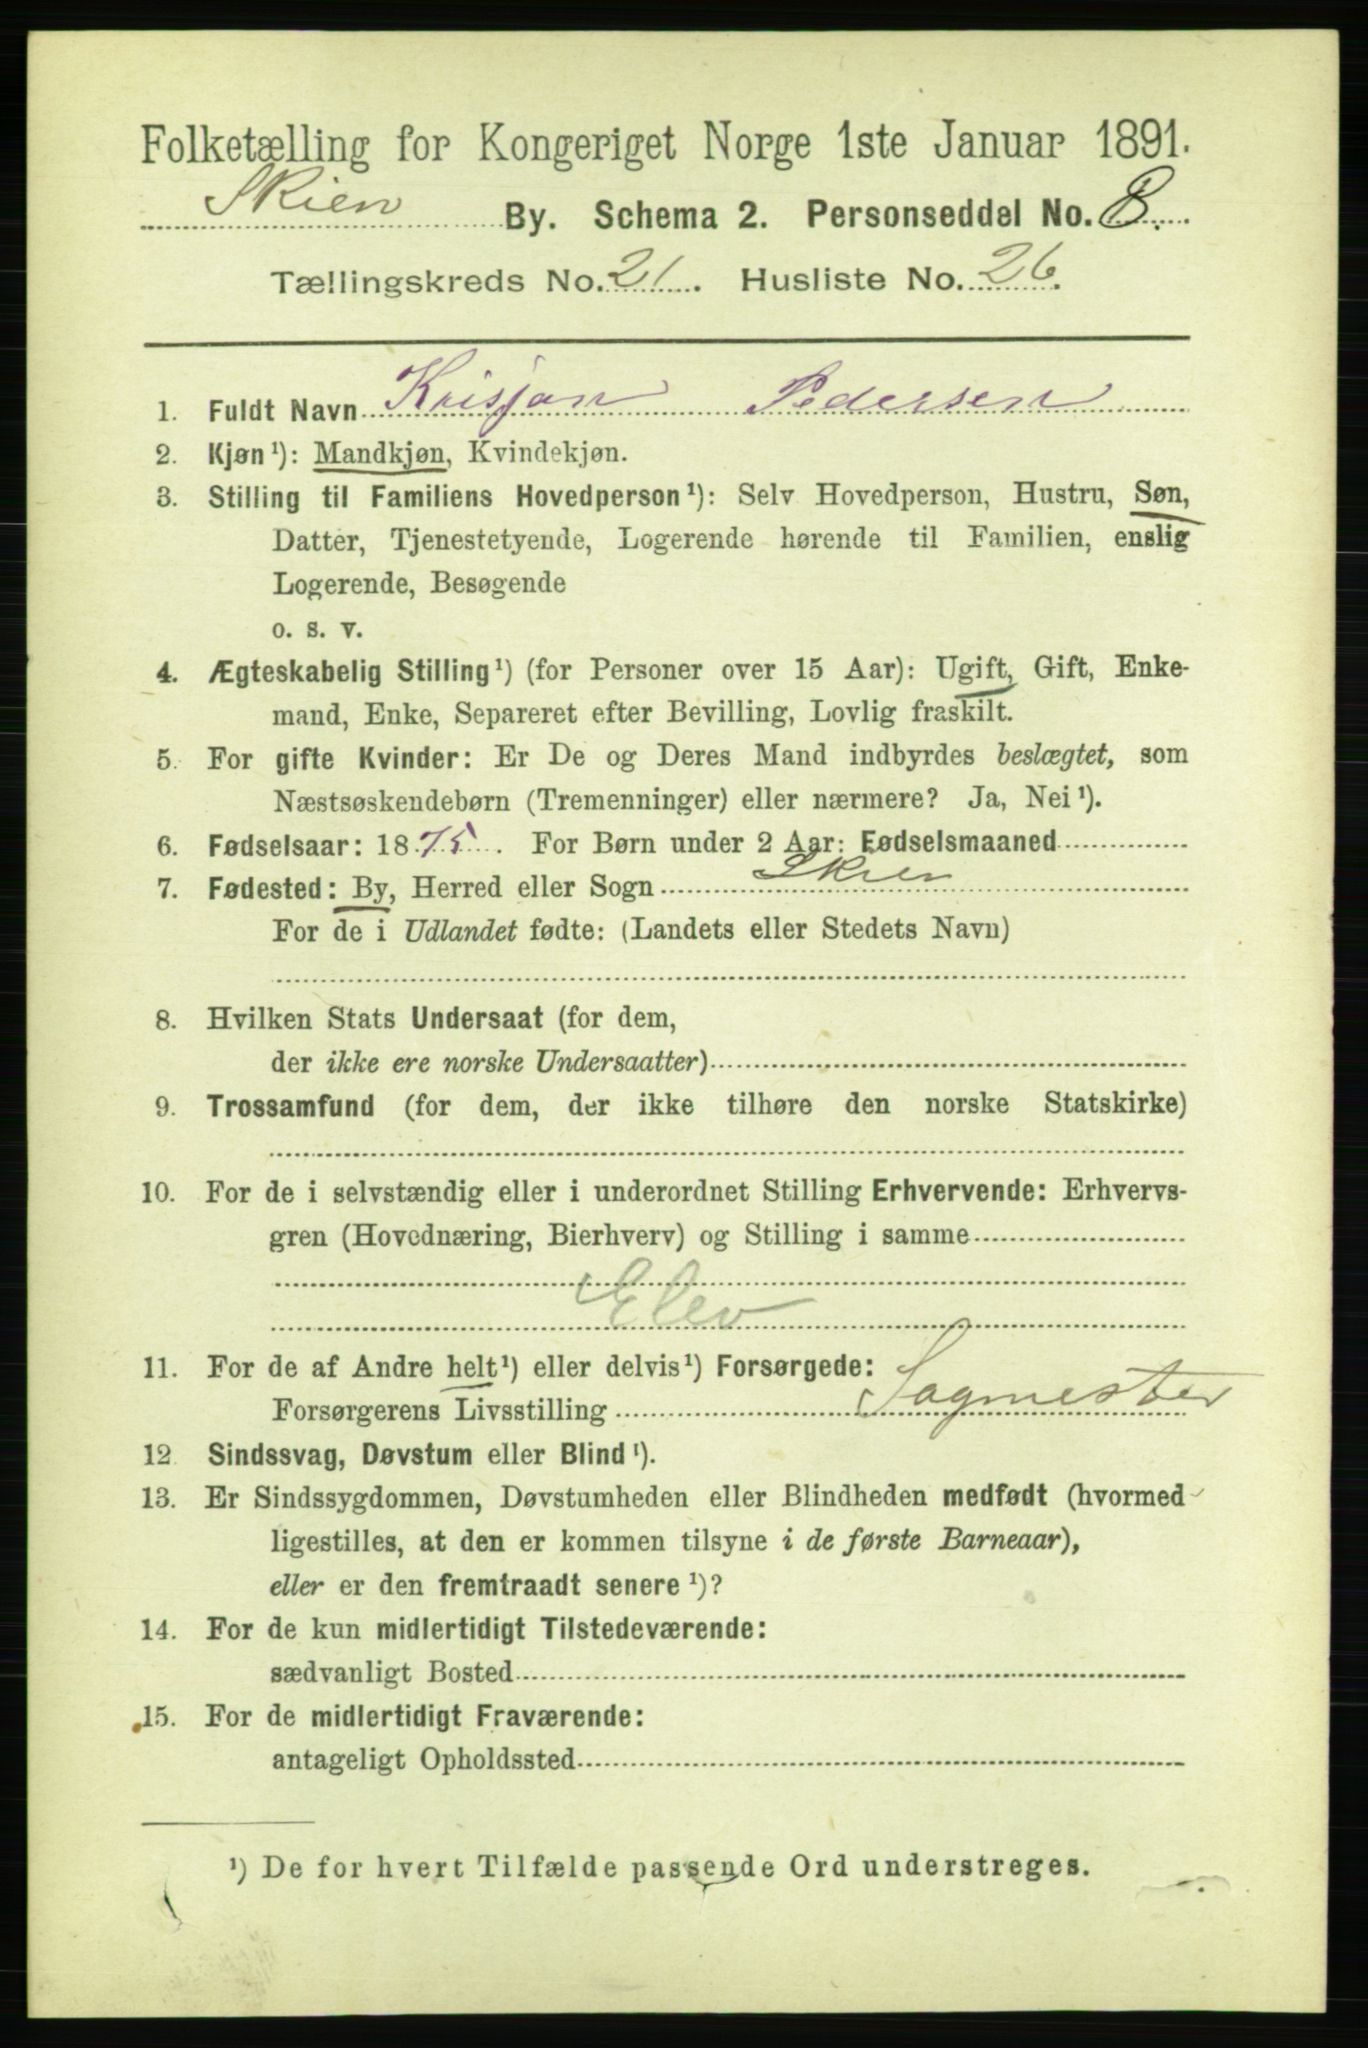 Folketælling for Kongeriget Norge 1ste Januar 1891.
Skien By. Schema 2. Personseddel No. 8.
Tællingskreds No. 21. Husliste No. 26.
1. Fuldt Navn Krisjan Pedersen
2. Kjøn¹): Mandkjøn, Kvindekjøn.
3. Stilling til Familiens Hovedperson¹): Selv Hovedperson, Hustru, Søn,
Datter, Tjenestetyende, Logerende hørende til Familien, enslig
Logerende, Besøgende
o. s. v.
4. Ægteskabelig Stilling¹) (for Personer over 15 Aar): Ugift, Gift, Enke-
mand, Enke, Separeret efter Bevilling, Lovlig fraskilt.
5. For gifte Kvinder: Er De og Deres Mand indbyrdes beslægtet, som
Næstsøskendebørn (Tremenninger) eller nærmere? Ja, Nei¹).
6. Fødselsaar: 1875. For Børn under 2 Aar: Fødselsmaaned
7. Fødested: By, Herred eller Sogn Skien
For de i Udlandet fødte: (Landets eller Stedets Navn)
8. Hvilken Stats Undersaat (for dem,
der ikke ere norske Undersaatter)
9. Trossamfund (for dem, der ikke tilhøre den norske Statskirke)
10. For de i selvstændig eller i underordnet Stilling Erhvervende: Erhvervs-
gren (Hovednæring, Bierhverv) og Stilling i samme
Elev
11. For de af Andre helt¹) eller delvis¹) Forsørgede:
Forsørgerens Livsstilling Sagmester
12. Sindssvag, Døvstum eller Blind¹).
13. Er Sindssygdommen, Døvstumheden eller Blindheden medfødt (hvormed
ligestilles, at den er kommen tilsyne i de første Barneaar),
eller er den fremtraadt senere¹)?
14. For de kun midlertidigt Tilstedeværende:
sædvanligt Bosted
15. For de midlertidigt Fraværende:
antageligt Opholdssted
¹) De for hvert Tilfælde passende Ord understreges.